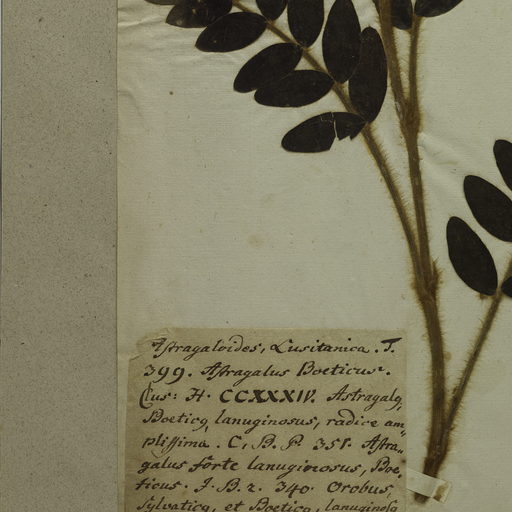 Astragaloides, Lusitanica. T.
399. Astragalus Boeticus.
Clus: H. CCXXXIV. Astragalq
Boeticq, lanuginosus, radice am„
plissima. C. B. P. 351. Astra„
galus forte lanuginosus, Boe„
ticus. J. B. 2. 340. Orobus
sylvaticq, et Boeticq, lanuginosq